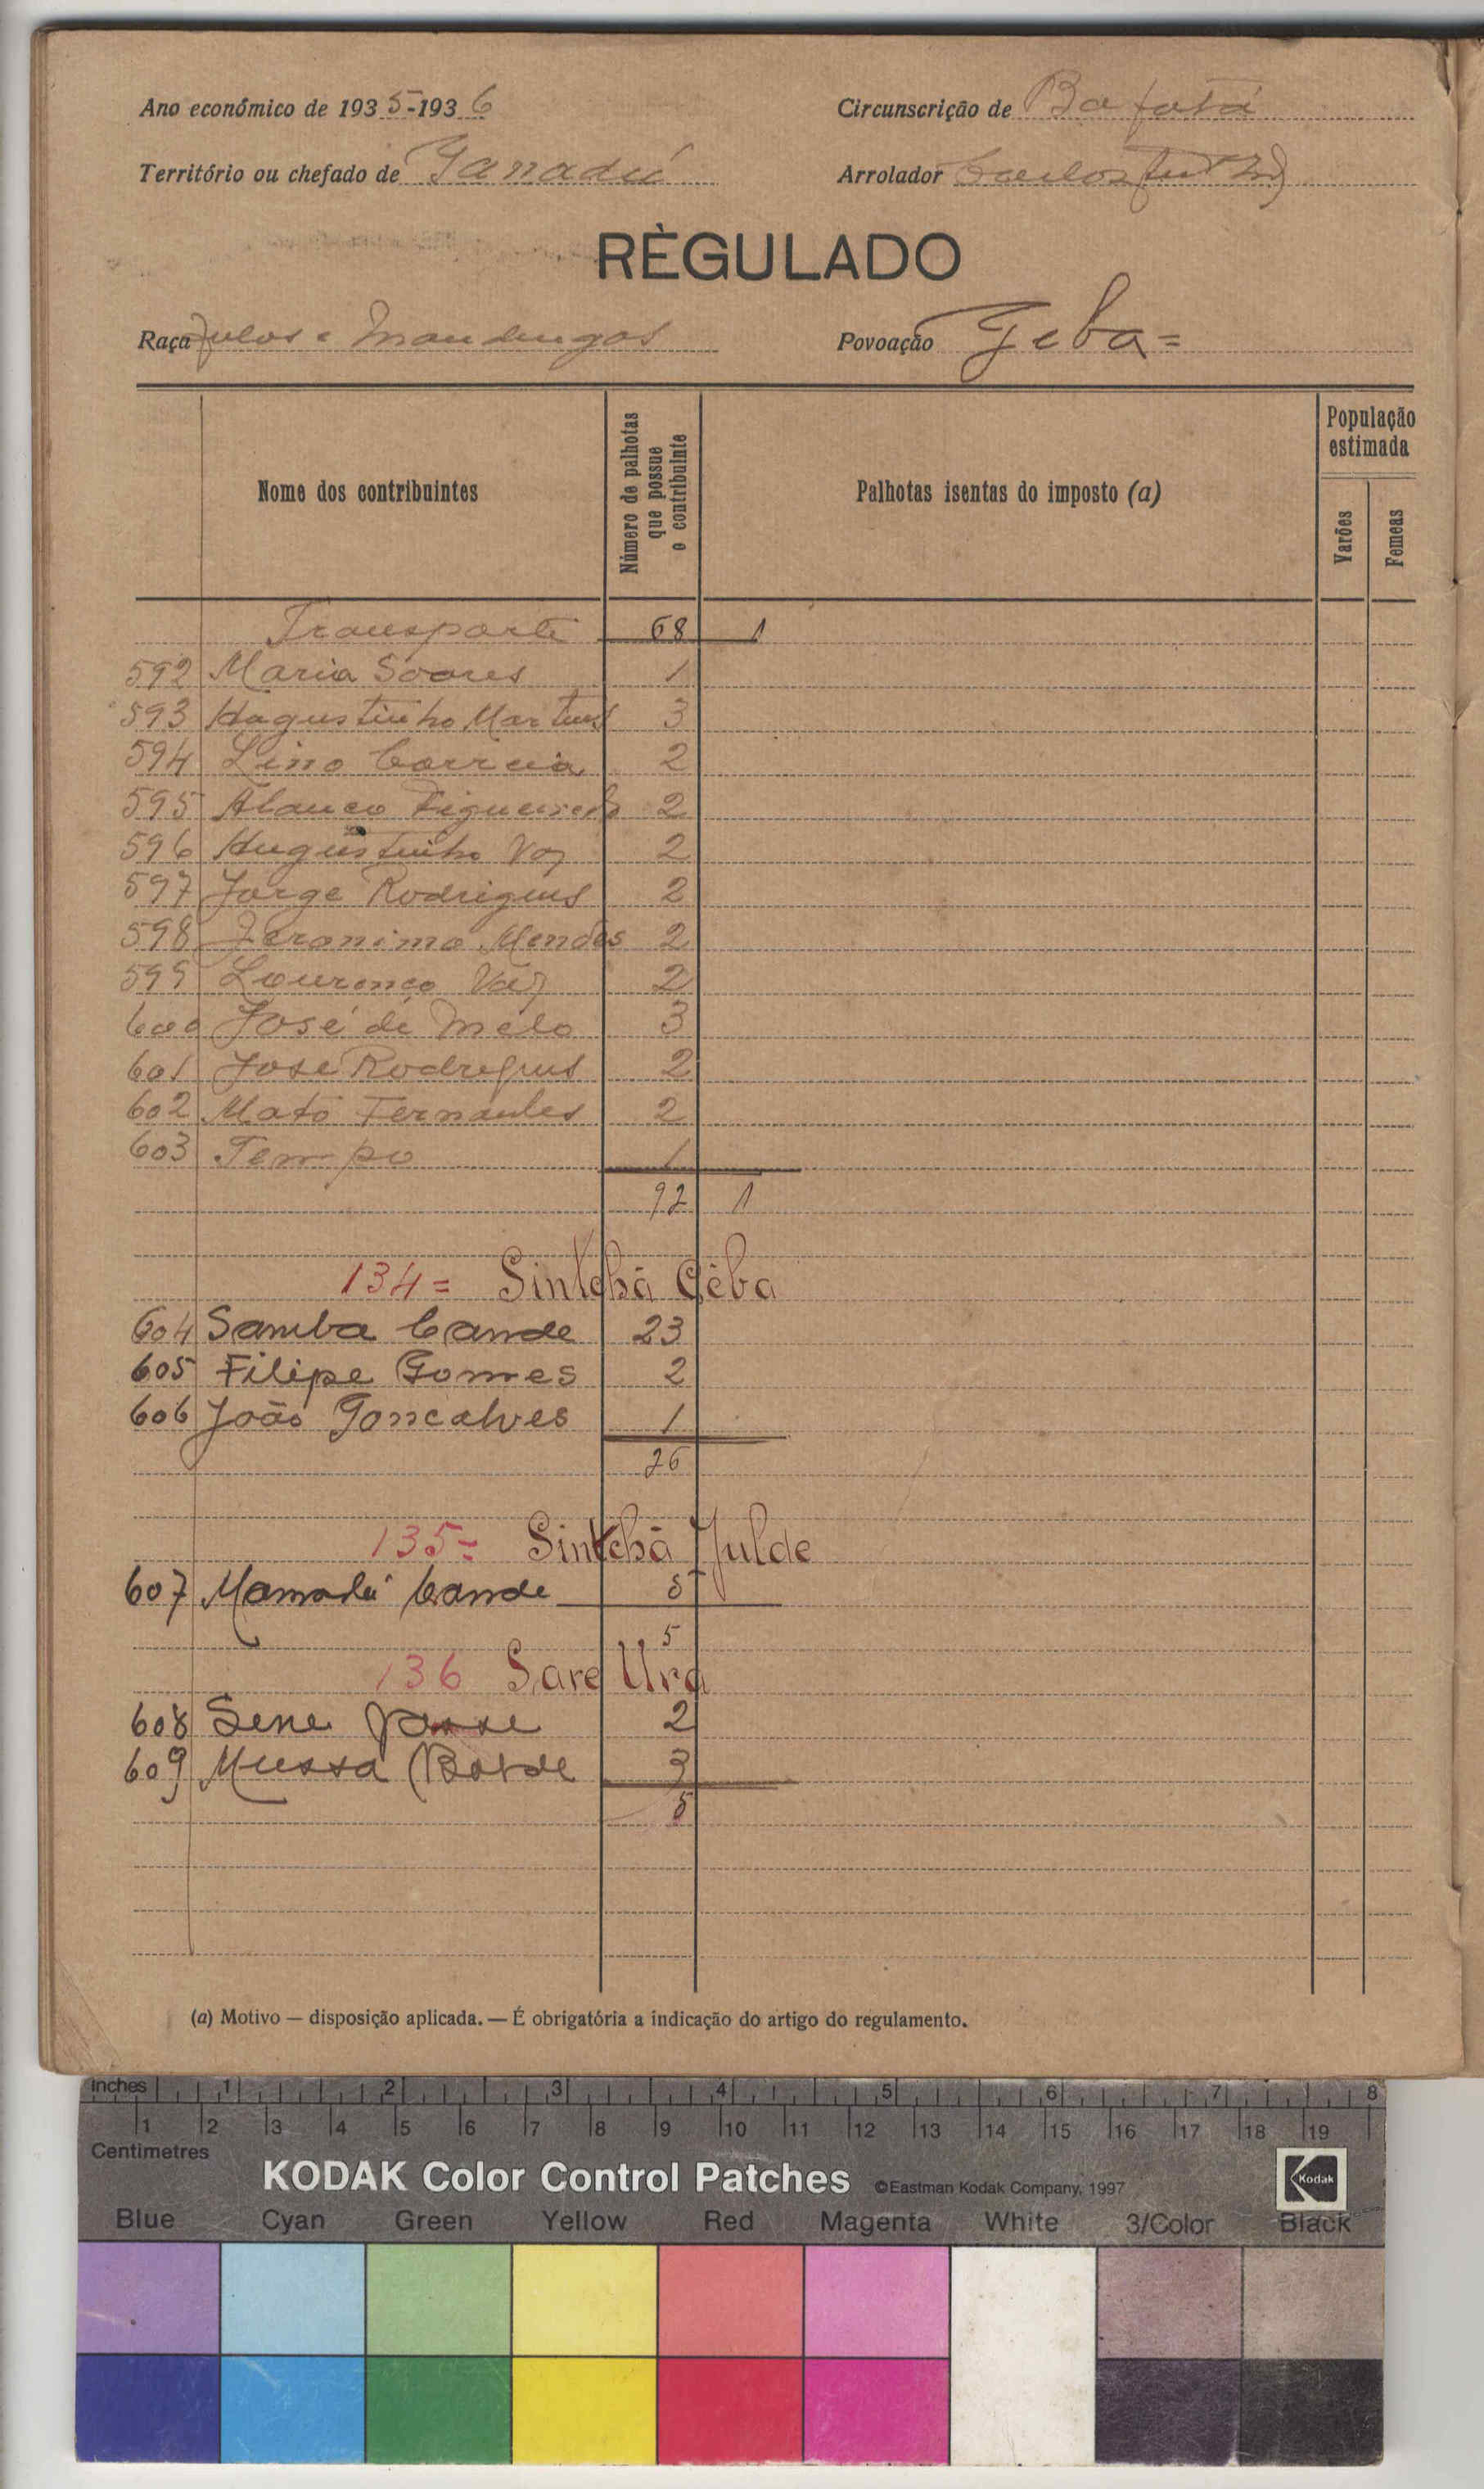 Ano económico de 1935-1936
Circunscrição de Bafatá
Território ou chefado de Ganadú
Arrolador Carlos
RÈGULADO
Raça Fulos e Mandingas
Povoação Geba=
Nome dos contribuintes
Número de palhotas que possue o contribuinte
Palhotas isentas do imposto (a)
População estimada
Varões
Femeas
Transporte 68 1
592 Maria Soares 1
593 Hagustinho Martins 3
594 Lino Correia 2
595 Figueiredo 2
596 Hugustinho Voz 2
597 Jorge Rodrigues 2
598 Jeronimo Mendes 2
599 Lourenço Vaz 2
600 José de Melo 3
601 José Rodrigues 2
602 Mato Fernandes 2
603 Tempo 1
92 1
134= Sintchã Gêba
604 Samba Cande 23
605 Filipe Gomes 2
606 João Goncalves 1
26
135= Sintchã Julde
607 Mamadú Cande 5
5
136 Sare Ura
608 Sene 2
609 Mussa Balde 3
5
(a) Motivo — disposição aplicada. — É obrigatória a indicação do artigo do regulamento.
Inches 1 2 3 4 5 6 7 8
1 2 3 4 5 6 7 8 9 10 11 12 13 14 15 16 17 18 19
Centimetres
KODAK Color Control Patches ©Eastman Kodak Company, 1997 Kodak
Blue Cyan Green Yellow Red Magenta White 3/Color Black